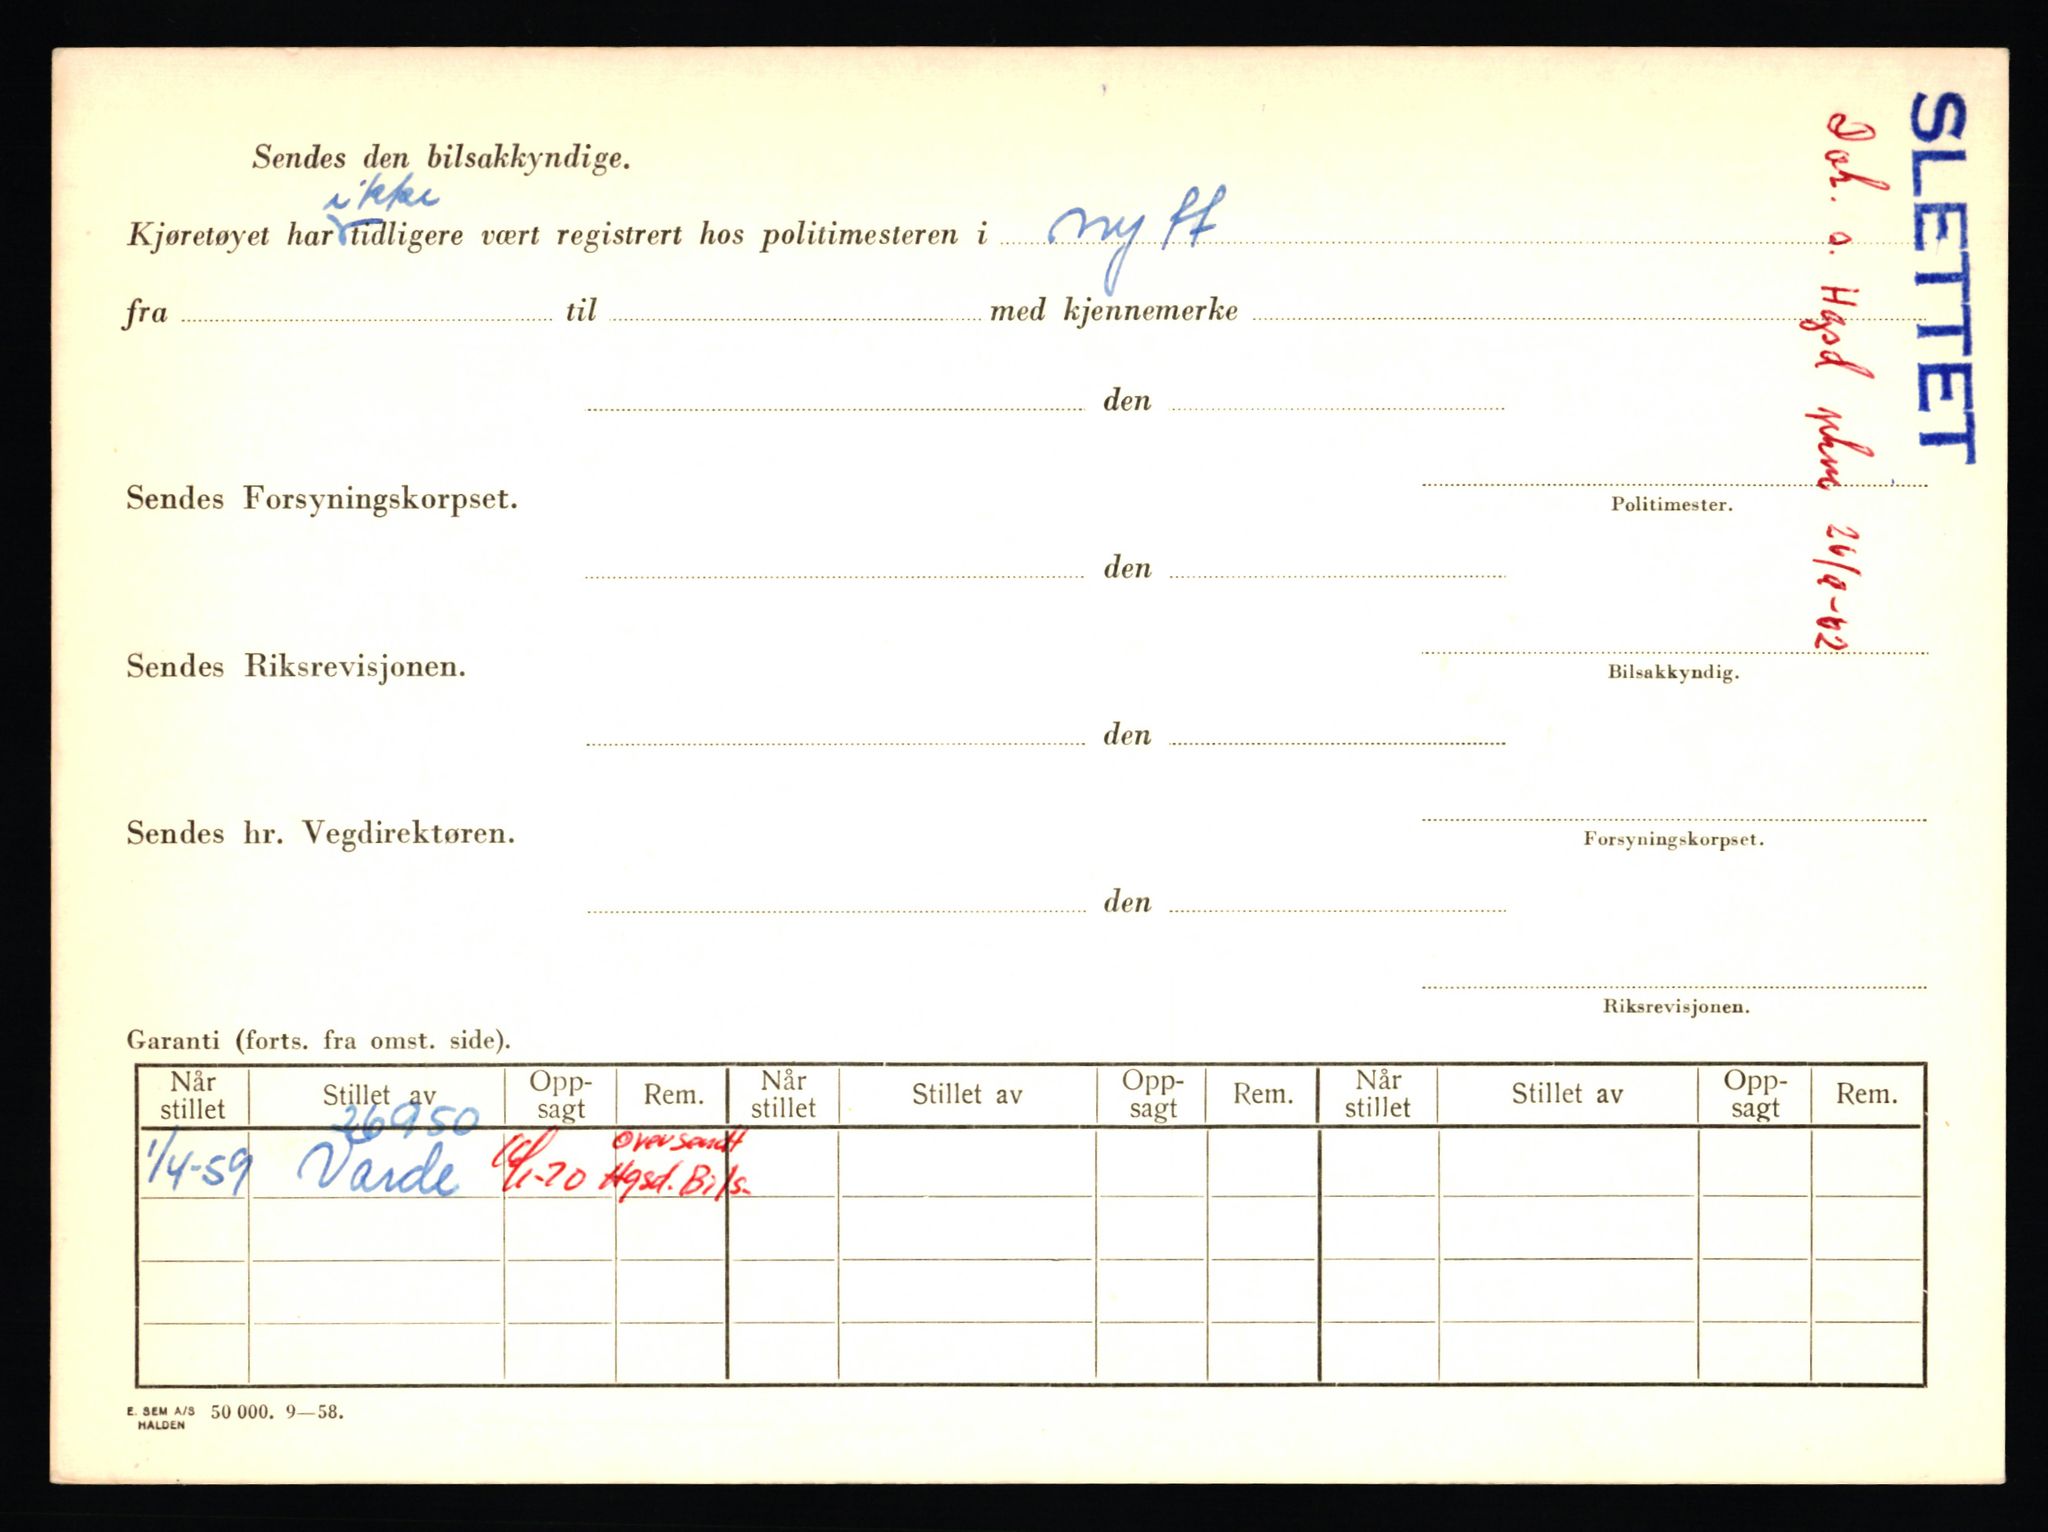 SLETTET
Dok. s. Hgsd phm 26/9-62
Sendes den bilsakkyndige.
ikke
Kjøretøyet har tidligere vært registrert hos politimesteren i nytt
fra til med kjennemerke
den
Sendes Forsyningskorpset.
Politimester.
den
Sendes Riksrevisjonen.
Bilsakkyndig.
den
Sendes hr. Vegdirektøren.
Forsyningskorpset.
den
Riksrevisjonen.
Garanti (forts. fra omst. side).
Når stillet Stillet av Opp-sagt Rem. Når stillet Stillet av Opp-sagt Rem. Når stillet Stillet av Opp-sagt Rem.
26950 Oversendt
1/4-59 Varde 16/1-70 Hgsd. Bils.
E. SEM A/S 50 000. 9—58.
HALDEN